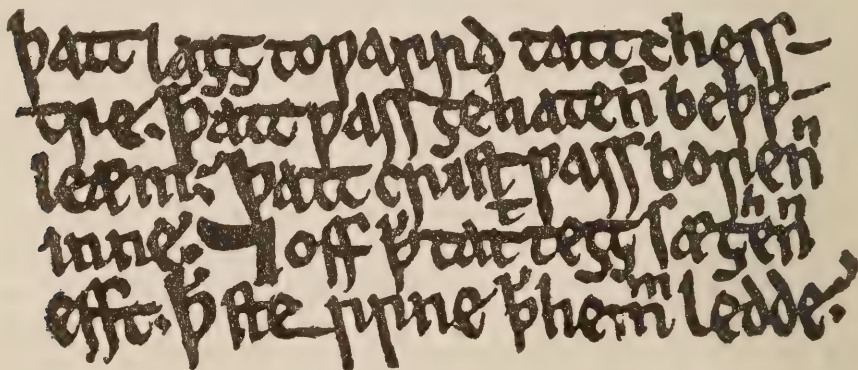 þatt laȝȝ toƿarrd tatt chess-
tre. þatt ƿass ȝehatenn̄ beþþ-
leæm; þatt crist ƿass borenn
inne. ⁊ off ꝥ tatt teȝȝ sæȝhenn
efft. ꝥ ste rrne ꝥ hemm ledde.